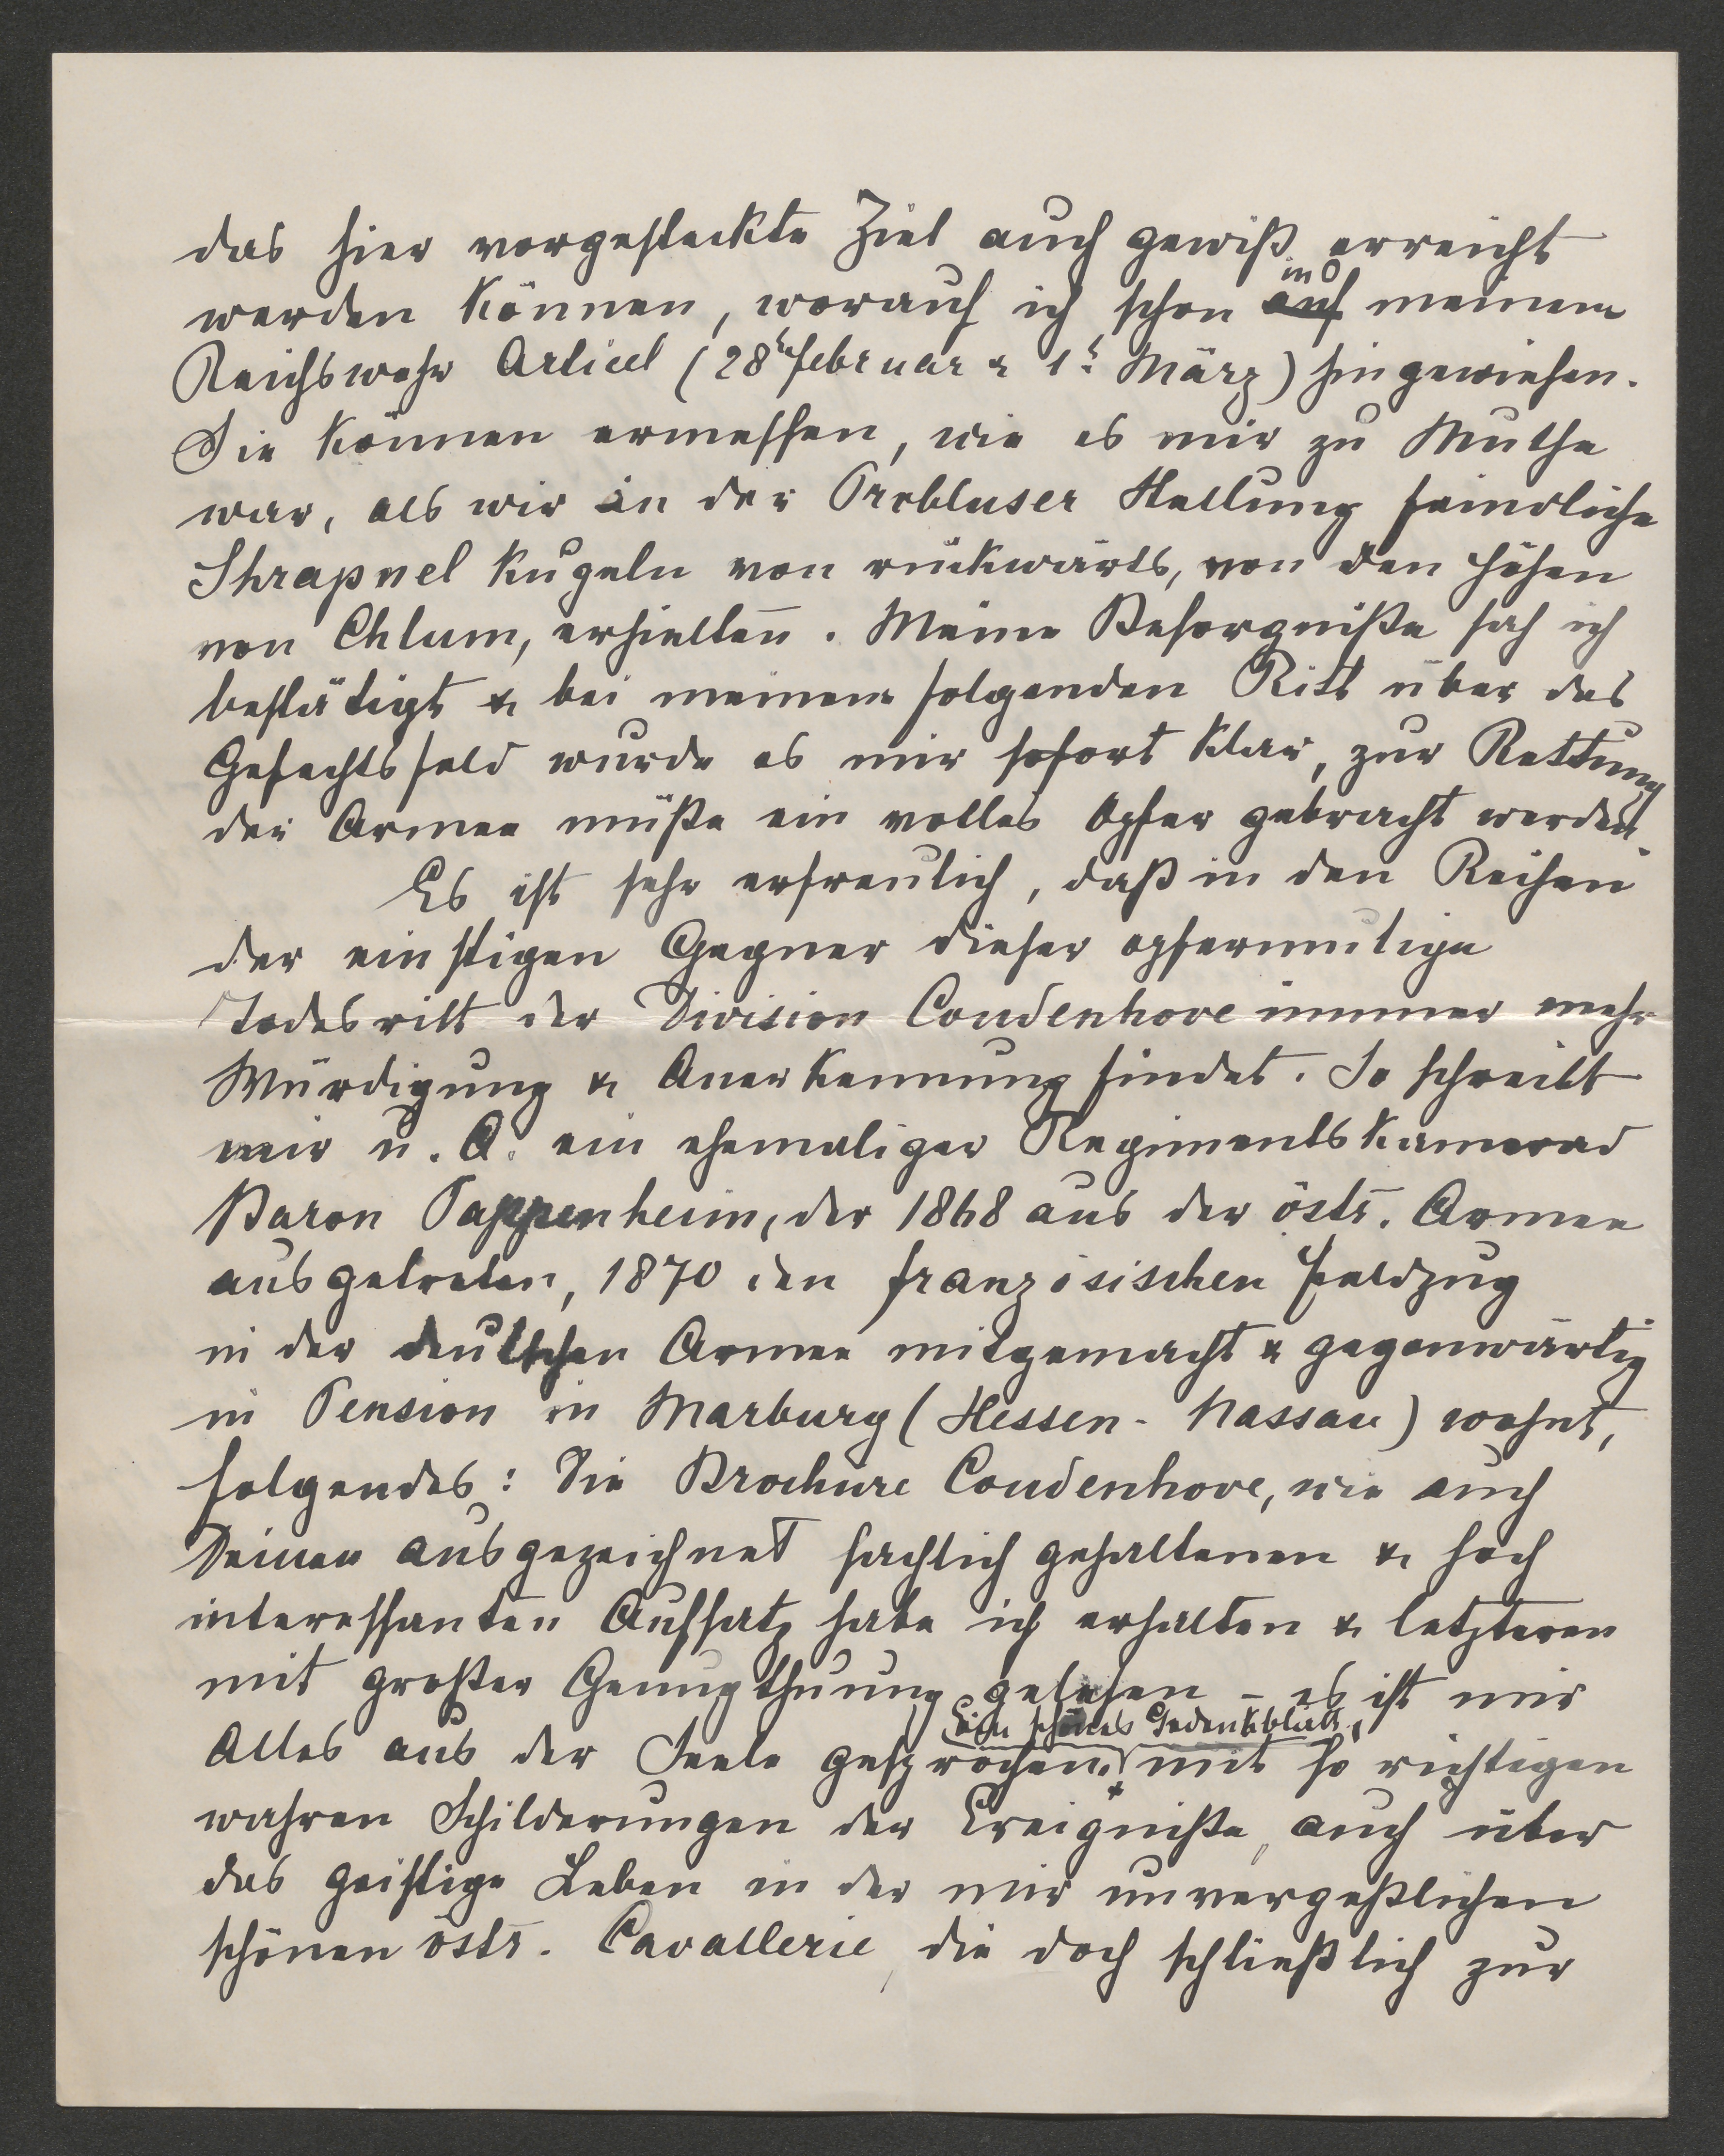 das hier vorgesteckte Ziel auch gewiß erreicht
werden können, worauf ich schon auf in meinem
Reichswehr Articel (28t Februar & 1t März) hingewiesen.
Sie können ermessen, wie es mir zu Muthe
war, als wir in der Probluser Stellung feindliche
Shrapnel Kugeln von rückwärts, von den Höhen
von Chlum, erhielten. Meine Besorgniße sah ich
bestätigt & bei meinem folgenden Ritt über das
Gefechtsfeld wurde es mir sofort klar, zur Rettung
der Armee müße ein volles Opfer gebracht werden.
Es ist sehr erfreulich, daß in den Reihen
der einstigen Gegner dieser opfermutige
Todesritt der Division Coudenhove immer mehr
Würdigung & Anerkennung findet. So schreibt
mir u. A. ein ehemaliger Regimentskamerad
Baron Pappenheim, der 1868 aus der östr. Armee
ausgetreten, 1870 den französischen Feldzug
in der deutschen Armee mitgemacht & gegenwärtig
in Pension in Marburg (Hessen-Nassau) wohnt,
folgendes: Die Brochure Coudenhove, wie auch
Deinen ausgezeichnet sachlich gehaltenen & hoch
interessanten Aufsatz habe ich erhalten & letzteren
mit großer Genugthuung gelesen – es ist mir
Ein schönes Gedenkblatt,
Alles aus der Seele gesprochen. mit so richtigen
wahren Schilderungen der Ereigniße, auch über
das geistige Leben in der mir unvergeßlichen
schönen östr. Cavallerie, die doch schließlich zur